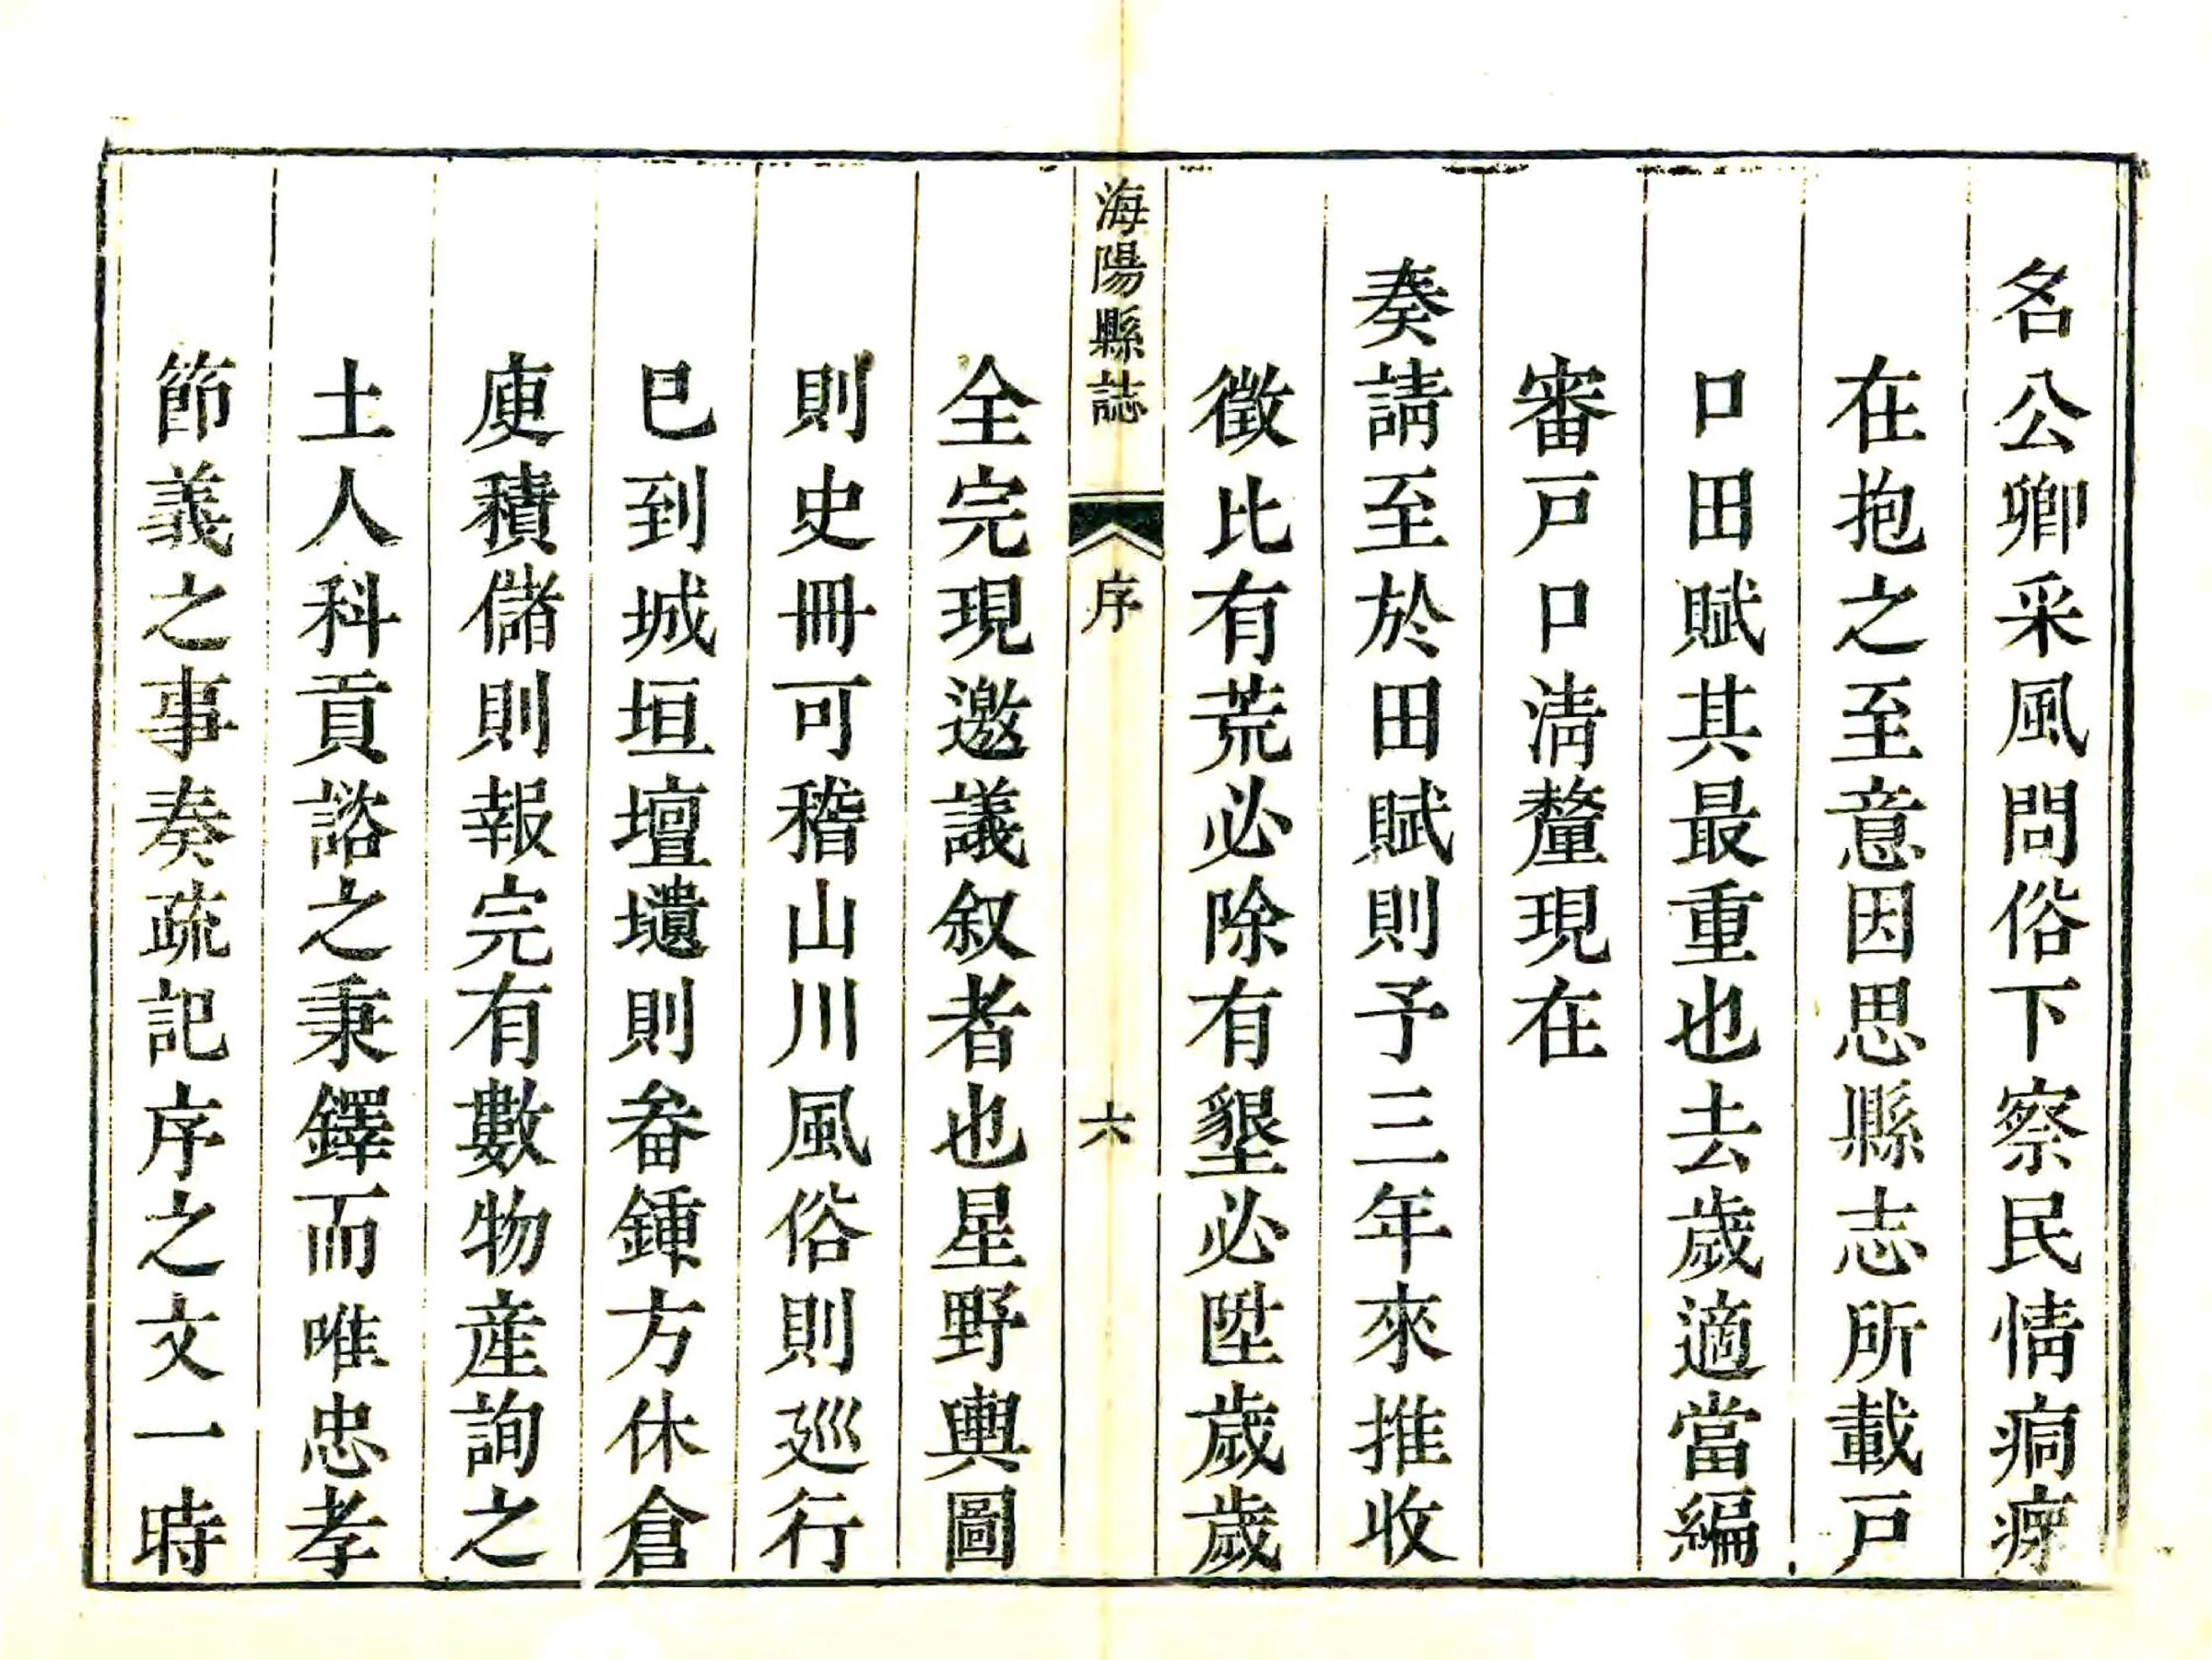 名公卿采風問俗下察民情痌瘝
在抱之至意因思縣志所載戸
口田賦其最重也去歲適當編
審戸口淸釐現在
奏請至於田賦則予三年來推收
徵比有荒必除有墾必陞歲歲
海陽縣誌 序 六
全完現邀議叙者也星野輿圖
則史冊可稽山川風俗則廵行
巳到城垣壇壝則畚鍾方休倉
庾積儲則報完有數物産詢之
土人科貢諮之秉鐸而唯忠孝
節義之事奏疏記序之文一時